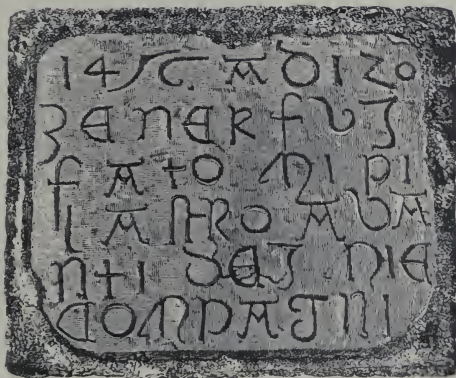 1456. A DI 20
ZENER FVI
FATO MI PI
LASTRO AVA
NTI DEI MIE
COMPAGNI